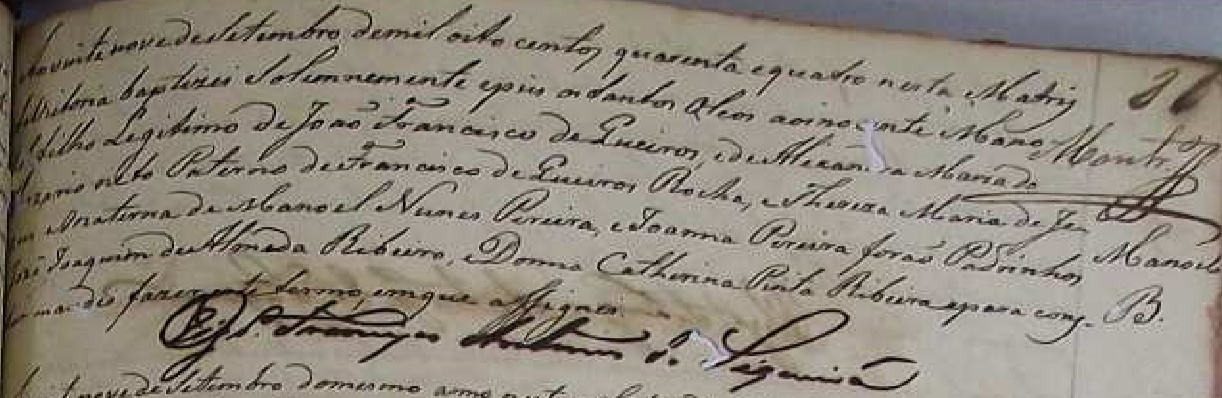 Ao vinte nove de Setembro de mil oito centos quarenta e quatro nesta Matriz
baptizei Solemnemente e pus os Santos Oleos ao inocente Mano
filho Legitimo de João Francisco de Queiros, e de Alexandra Maria do
neto Paterno de Francisco de Queiros Rocha, e Thereza Maria de Je
Materna de Manoel Nunes Pereira, e Joanna Pereira forão Padrinhos
Joaquim de Almeida Ribeiro, e Donna Catherina Pinta Ribeira e para cons
mandei fazer este termo, em que assignei
Antunes de Siqueira
nove de Setembro do mesmo anno
Manoel
B.